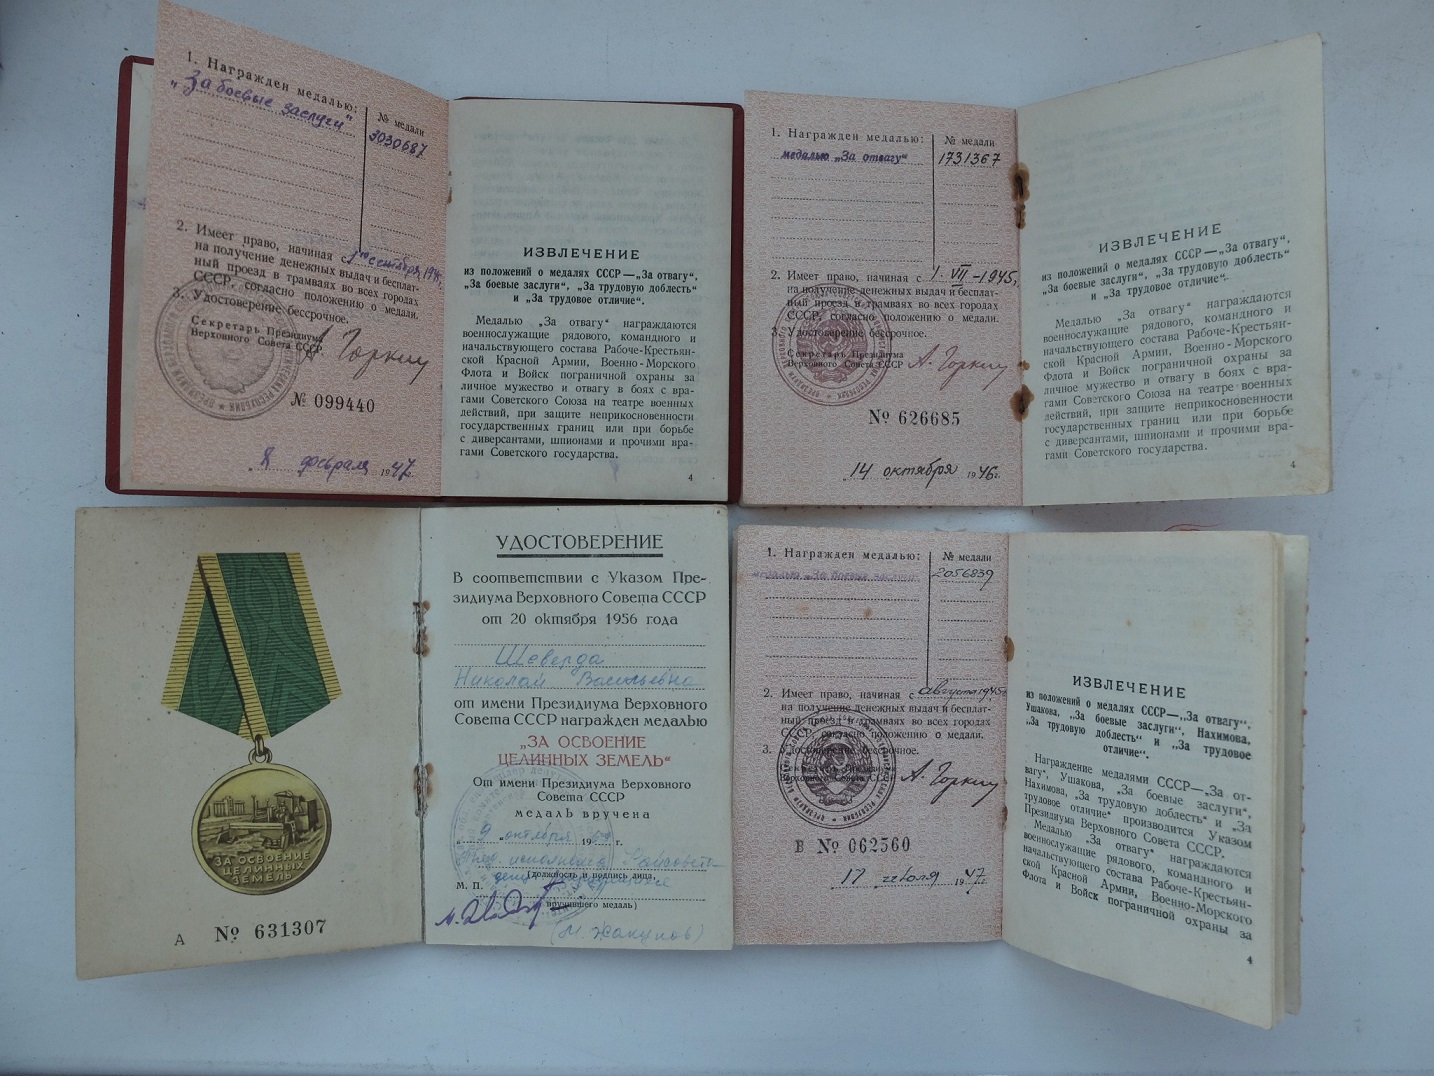 1. Награжден медалью:
№ медали
„За боевые заслуги"
3030687
2. Имеет право, начиная с 1го сентября 194
на получение денежных выдач и бесплат-
ный проезд в трамваях во всех городах
СССР, согласно положению о медали.
3. Удостоверение бессрочное.
Секретарь Президиума
Верховного Совета СССР
А. Горкин
№ 099440
„8 февраля 1947г.
ИЗВЛЕЧЕНИЕ
из положений о медалях СССР—„За отвагу",
„За боевые заслуги", „За трудовую доблесть"
и „За трудовое отличие".
Медалью „За отвагу" награждаются
военнослужащие рядового, командного и
начальствующего состава Рабоче-Крестьян-
ской Красной Армии, Военно-Морского
Флота и Войск пограничной охраны за
личное мужество и отвагу в боях с вра-
гами Советского Союза на театре военных
действий, при защите неприкосновенности
государственных границ или при борьбе
с диверсантами, шпионами и прочими вра-
гами Советского государства.
4
1. Награжден медалью:
№ медали
медалью „За отвагу"
1731367
2. Имеет право, начиная с 1. VII -1945г.
на получение денежных выдач и бесплат-
ный проезд в трамваях во всех городах
СССР, согласно положению о медали.
3. Удостоверение бессрочное.
Секретарь Президиума
Верховного Совета СССР
А. Горкин
№ 626685
14 октября 1946г.
ИЗВЛЕЧЕНИЕ
из положений о медалях СССР—„За отвагу",
„За боевые заслуги", „За трудовую доблесть"
и „За трудовое отличие".
Медалью „За отвагу" награждаются
военнослужащие рядового, командного и
начальствующего состава Рабоче-Крестьян-
ской Красной Армии, Военно-Морского
Флота и Войск пограничной охраны за
личное мужество и отвагу в боях с вра-
гами Советского Союза на театре военных
действий, при защите неприкосновенности
государственных границ или при борьбе
с диверсантами, шпионами и прочими вра-
гами Советского государства.
4
ЗА ОСВОЕНИЕ
ЦЕЛИННЫХ
ЗЕМЕЛЬ
А № 631307
УДОСТОВЕРЕНИЕ
В соответствии с Указом Пре-
зидиума Верховного Совета СССР
от 20 октября 1956 года
Шеверда
Николай Васильевич
от имени Президиума Верховного
Совета СССР награжден медалью
„ЗА ОСВОЕНИЕ
ЦЕЛИННЫХ ЗЕМЕЛЬ"
От имени Президиума Верховного
Совета СССР
медаль вручена
„9 октября 19 г.
(должность и подпись лица,
М. П.
вручившего медаль)
(М. Жакупов)
1. Награжден медалью:
№ медали
медалью „За боевые заслуги"
2056839
2. Имеет право, начиная с августа 1945г.
на получение денежных выдач и бесплат-
ный проезд в трамваях во всех городах
СССР, согласно положению о медали.
3. Удостоверение бессрочное.
Секретарь Президиума
Верховного Совета СССР
А. Горкин
В № 062560
17 июля 1947г.
ИЗВЛЕЧЕНИЕ
из положений о медалях СССР—„За отвагу",
Ушакова, „За боевые заслуги", Нахимова,
„За трудовую доблесть" и „За трудовое
отличие".
Награждение медалями СССР—„За от-
вагу", Ушакова, „За боевые заслуги",
Нахимова, „За трудовую доблесть" и „За
трудовое отличие" производится Указом
Президиума Верховного Совета СССР.
Медалью „За отвагу" награждаются
военнослужащие рядового, командного и
начальствующего состава Рабоче-Крестьян-
ской Красной Армии, Военно-Морского
Флота и Войск пограничной охраны за
4